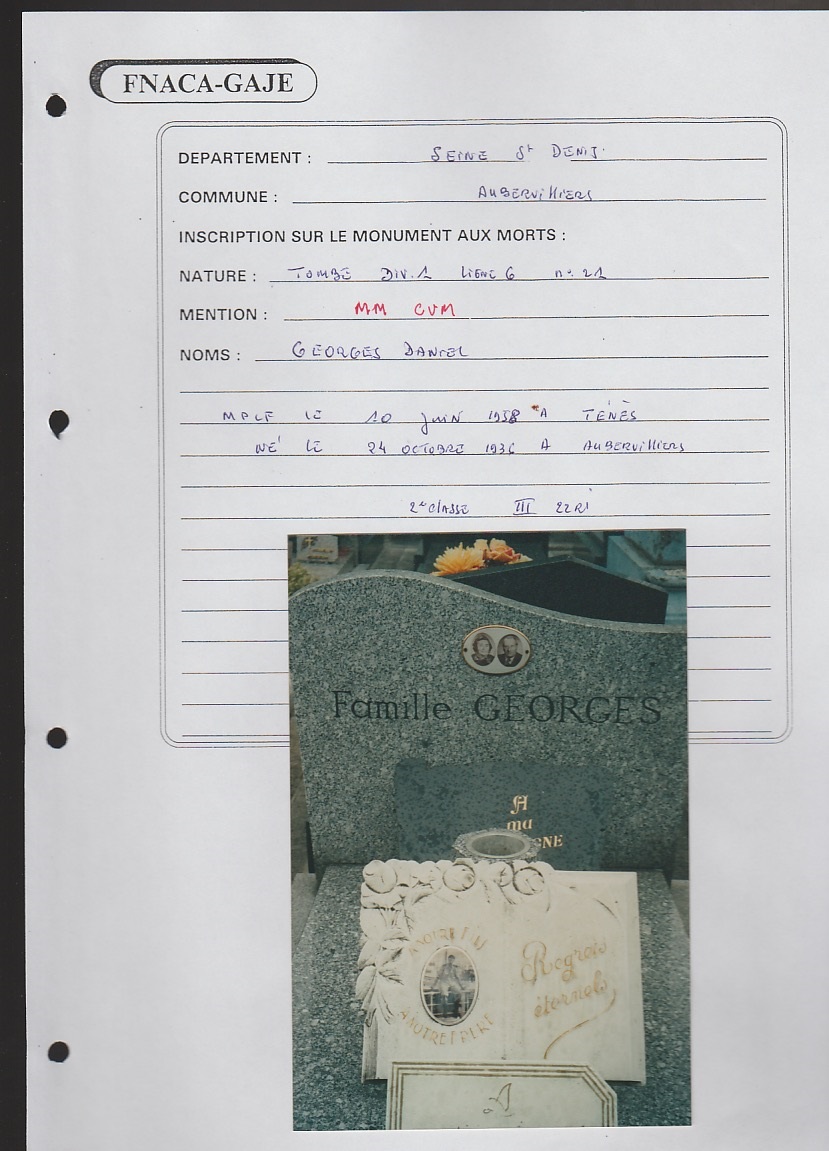 FNACA-GAJE
DEPARTEMENT : SEINE St DENIS
COMMUNE : AUBERVILLIERS
INSCRIPTION SUR LE MONUMENT AUX MORTS :
NATURE : TOMBE DIV.1 LIGNE 6 n° 21
MENTION : MM CVM
NOMS : GEORGES DANIEL
MPLF LE 10 JUIN 1958 A TÉNÈS
NÉ LE 24 OCTOBRE 1936 A AUBERVILLIERS
2e CLASSE III 22 RI
Famille GEORGES
A
ma
A NOTRE FILS
A NOTRE FRERE
Regrets
éternels